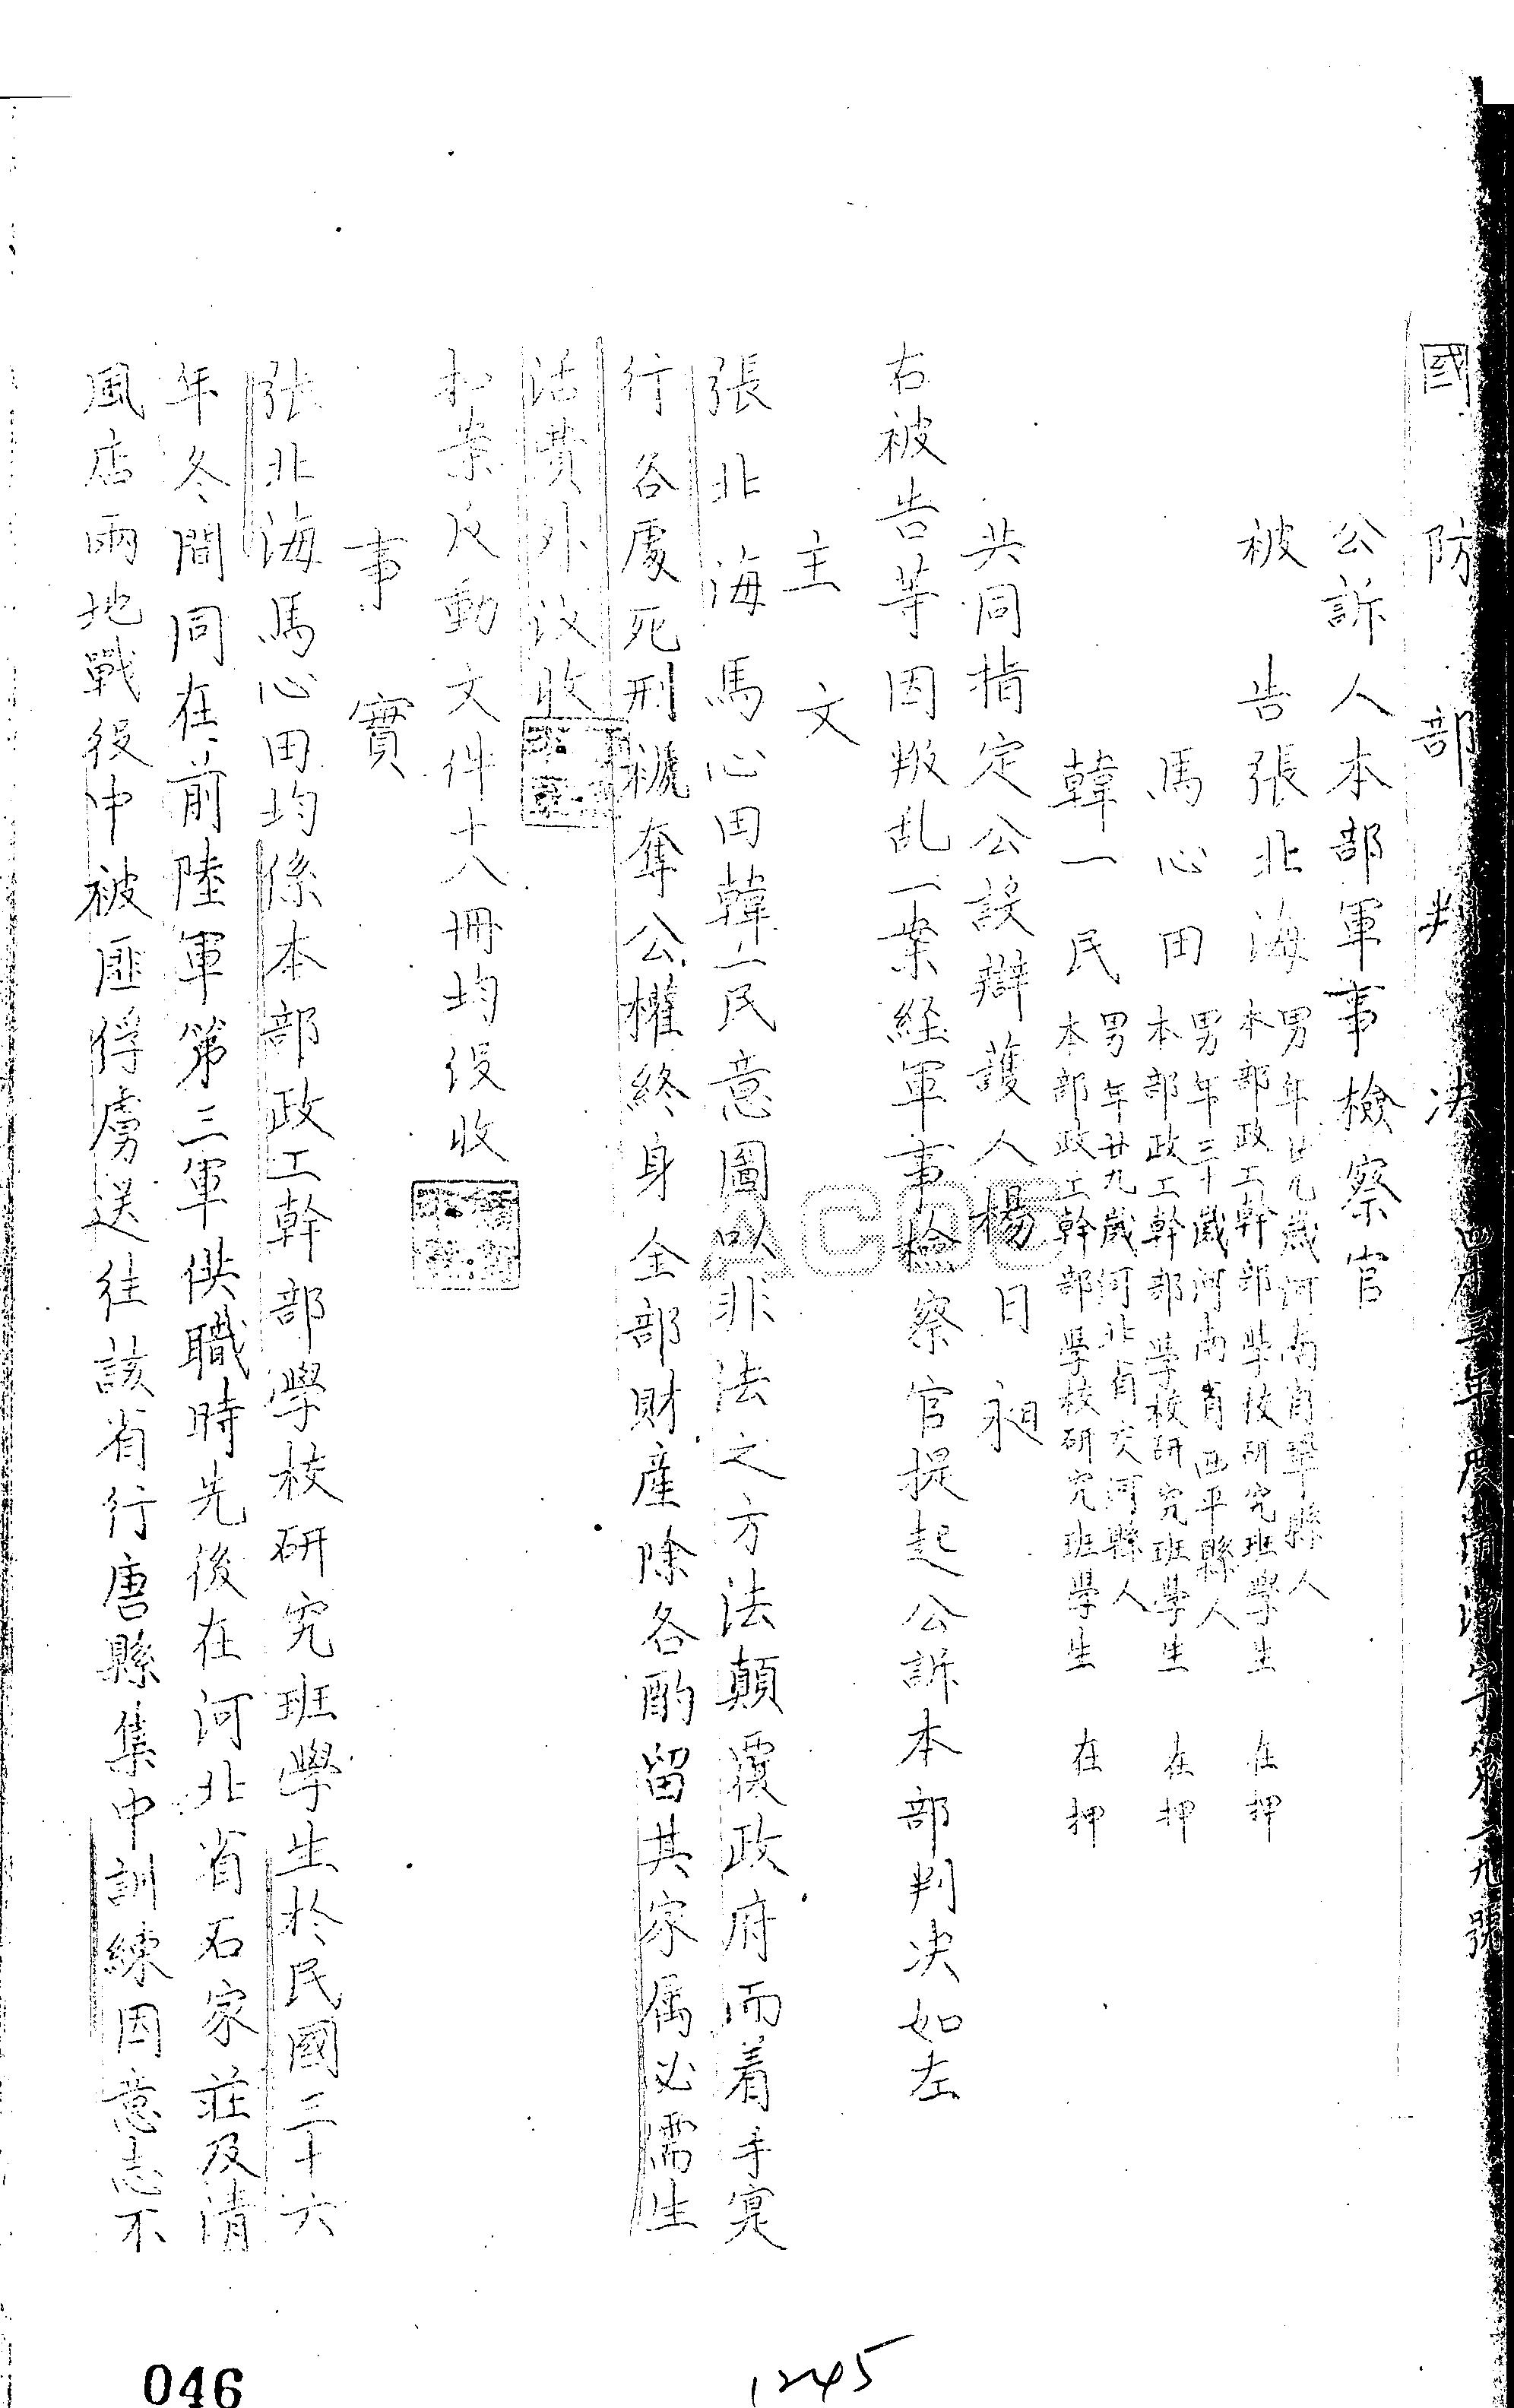 國防部判決
四十三年度清澤字第一九號
公訴人本部軍事檢察官
被告張北海
男年廿九歲河南省鞏縣人
本部政工幹部學校研究班學生 在押
馬心田
男年三十歲河南省西平縣人
本部政工幹部學校研究班學生 在押
韓一民
男年廿九歲河北省交河縣人
本部政工幹部學校研究班學生 在押
共同指定公設辯護人楊日昶
右被告等因叛乱一案経軍事檢察官提起公訴本部判决如左
主文
張北海馬心田韓一民意圖以非法之方法顛覆政府而着手寔
行各處死刑褫奪公權終身全部財產除各酌留其家属必需生
活費外没收
扣案反動文件十八冊均没收
事實
張北海馬心田均係本部政工幹部學校研究班學生於民國三十六
年冬間同在前陸軍第三軍供職時先後在河北省石家莊及清
風店兩地戰役中被匪俘虜送往該省行唐縣集中訓練因意志不
ACO5
046
1245